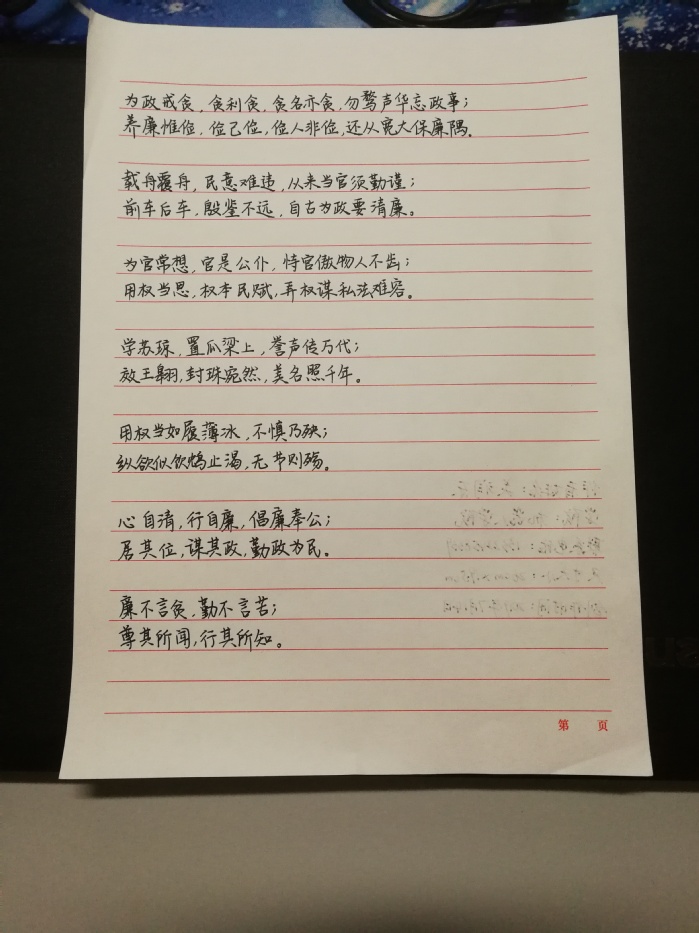 为政戒贪，贪利贪，贪名亦贪，勿骛声华忘政事；
养廉惟俭，俭己俭，俭人非俭，还从宽大保廉隅。
载舟覆舟，民意难违，从来当官须勤谨；
前车后车，殷鉴不远，自古为政要清廉。
为官常想，官是公仆，恃官傲物人不齿；
用权当思，权本民赋，弄权谋私法难容。
学苏琼，置瓜梁上，誉声传万代；
效王翱，封珠宛然，美名照千年。
用权当如履薄冰，不慎乃殃；
纵欲似饮鸩止渴，无节则殇。
心自清，行自廉，倡廉奉公；
居其位，谋其政，勤政为民。
廉不言贪，勤不言苦；
尊其所闻，行其所知。
第 页